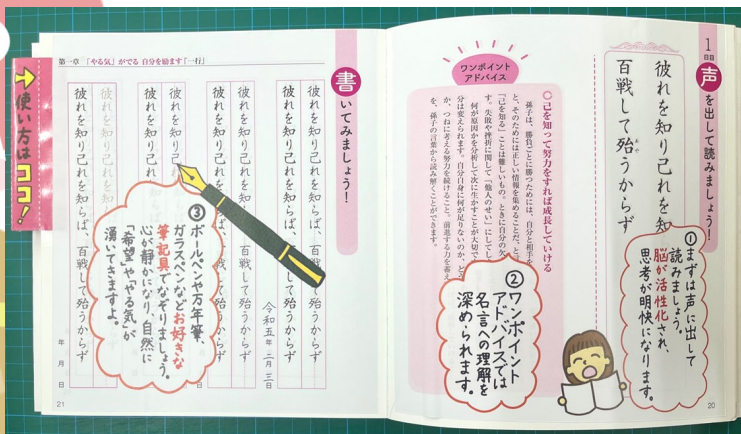 1日目
声を出して読みましょう!
彼れを知り己れを知
百戦して殆うからず
あや
①まずは声に出して
読みましょう。
脳が活性化され、
思考が明快になります。
20
ワンポイント
アドバイス
◎己を知って努力をすれば成長していける
孫子は、勝負ごとに勝つためには、自分と相手を
と、そのためには正しい情報を集めることだ、と
「己を知る」ことは難しいもの。ときに自分の欠
す。失敗や挫折に関して「他人のせい」にしてし
何が原因かを分析して次に生かすことが大切で
分は変えられます。自分自身に何が足りないのか、ど
か、つねに考える努力を続けること。前進する力を蓄え
を、孫子の言葉から読み解くことができます。
②ワンポイント
アドバイスでは
名言への理解を
深められます。
第一章 「やる気」がでる 自分を励ます「一行」
書いてみましょう!
彼れを知り己れを知らば、百戦して殆うからず
彼れを知り己れを知らば、百戦して殆うからず
令和五年 二月 三日
彼れを知り己れを知らば、百戦して殆うからず
彼れを知り己れを知らば、
彼れを知り己
彼れを知り己れ
彼れを知り己れを知らば、百戦して殆うからず
彼れを知り己れを知らば、百戦して殆うからず
年 月 日
③ボールペンや万年筆、
ガラスペンなどお好きな
筆記具でなぞりましょう。
心が静かになり、自然に
「希望」や「やる気」が
湧いてきますよ。
日
21
使い方はココ!